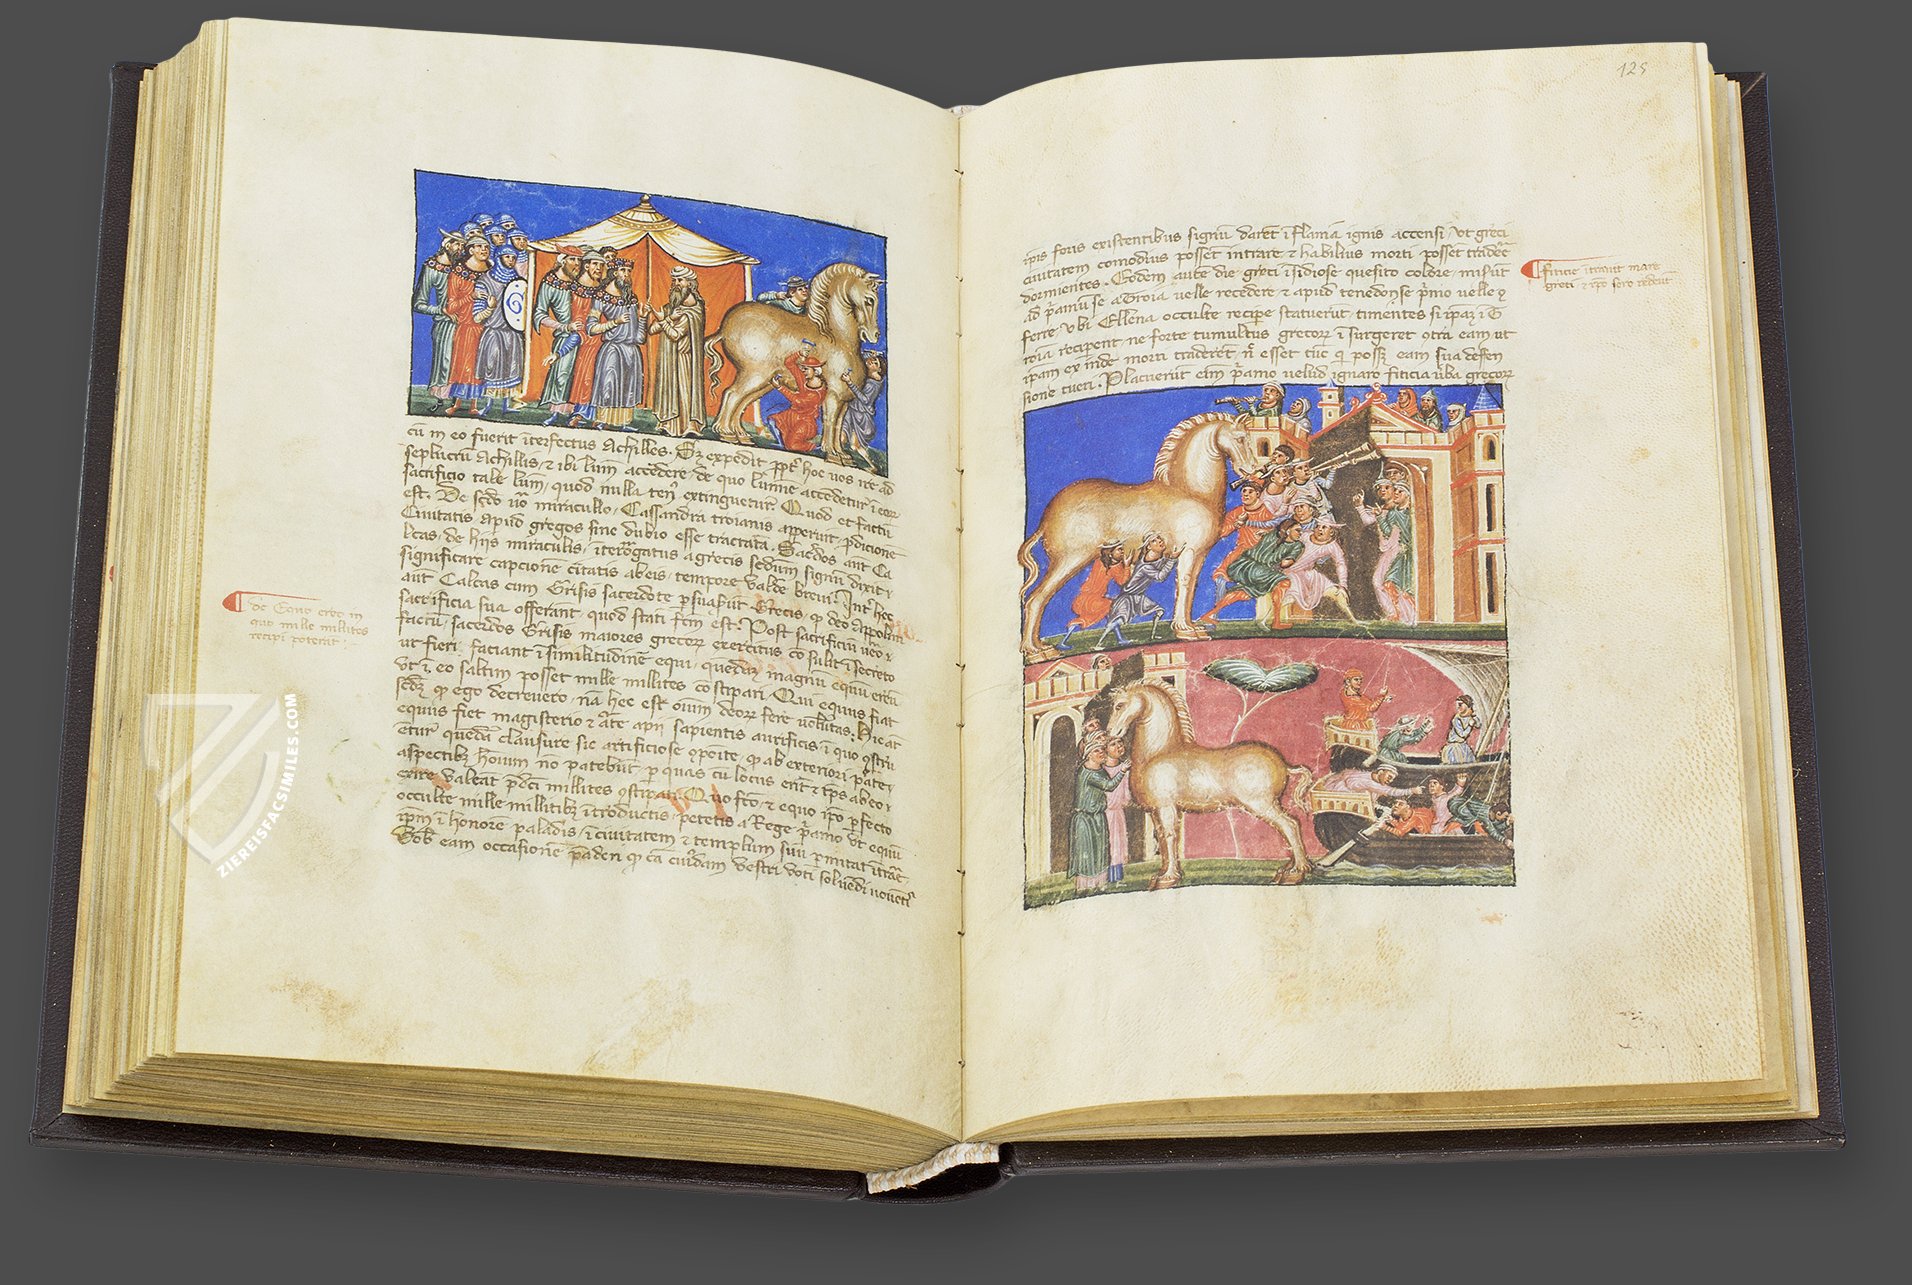 cū in eo fuerit īterfectus Achilles. Oꝫ expedit ꝓpt hoc uos ire ad
seplucrū Achillis, ⁊ ibi lum accedere, de quo lumine accedetur ī eorꝝ
sacrificio tale lum, quod nulla extinguetur. Quod et factū
est. De scdo uo miraculo, Cassandra troianis apperuit, ꝓdicionē
Ciuitatis apud gregos sine dubio esse tractata. Sacdos aut Ca
lcas, de hiis miraculis, īterrogatus a grecis sedium signū dixit
significare capcionē ciuitatis ab eis, tempore ualde breui. Int hec
aut Calcas cum Crisis sacerdote psuaserūt Grecis, ꝙ deo Appolini
sacrificia sua offerant, quod stati fcm est. Post sacrificiū uero
factū, sacerdos Crisis maiores grecorꝝ exercitus cōsulit ī secreto
ut fieri faciant ī similitudinē equi, quedaꝫ magnū equū ereū
ut ī eo saltim posset mille milites cōstipari. Qui equus fiat
scdꝫ ꝙ ego decreuero, nā hec est oium deorꝝ fere uolūtas. Hic at
equus fiet magisterio ⁊ arte apii sapientis aurificis ī quo ꝯstru
etur quedā clausure sic artificiose ꝯposite, ꝙ ab exteriori parte
aspectibꝫ hoium no patebūt, p quas cū locus erit ⁊ tps ab eo
exire ualeat pdci milites
occulte mille militibꝫ ītroductis, petetis a Rege pamo ut equū
ipm ī honorē paladis, ī ciuitatem ⁊ templum suū pmitat ītrare
sub eam occasionē ꝙ cā cuidam uestri uoti soluendi
de Equo ereo in
quo mille milites
recipi poterāt
125
ipīs foris existentibus signū daret ī flama ignis accensi ut greci
ciuitatem comodius possent intrare ⁊ habilius morti posset tradere
dormientes. Eodem aute die greci īsidiose quesito colore misūt
ad pamū se a Troia uelle recedere, ⁊ apud tenedon se pmo uelle
ferre ubi Ellena occulte recipe statuerūt, timentes si ipaꝫ ī T
roia reciperent ne forte tumultus grecorꝝ īsurgeret ꝯtra eam ut
ipam ex inde morti traderēt, nec esset tūc ꝙ posset eam sua defen
sione tueri. Placuerūt eim pamo uelud ignaro ficticia uba grecorꝝ
ficticie itrauit mare
greti, ⁊ ipo sero redeūt
ZIEREISFACSIMILES.COM